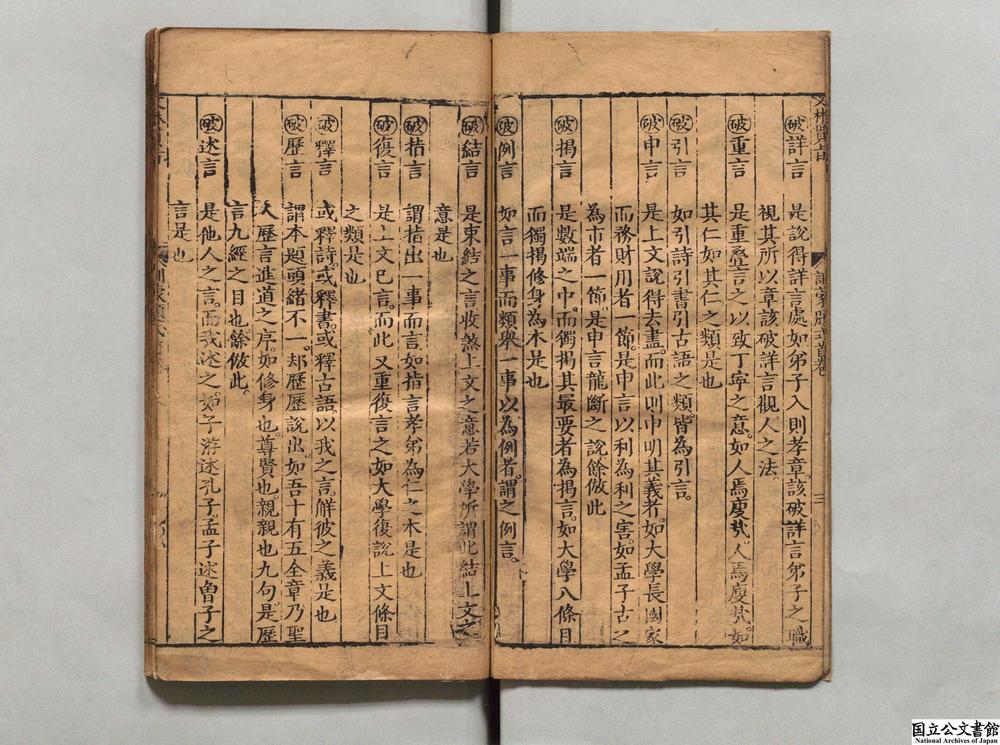 破詳言 是說得詳言處如弟子入則孝章該破詳言弟子之職
視其所以章該破詳言觀人之法
破重言 是重疊言之以致丁寧之意如人焉廋㢤人焉廋㢤如
其仁如其仁之類是也
破引言 如引詩引書引古語之類皆為引言
破申言 是上文說得去盡而此則申明其義者如大學長國家
而務財用者一節是申言以利為利之害如孟子古之
為市者一節是申言龍斷之說餘倣此
破揭言 是數端之中而獨揭其最要者為揭言如大學八條目
而獨揭修身為本是也
破例言 如言一事而類舉一事以為例者謂之例言
破結言 是束結之言收煞上文之意若大學所謂此結上文之
意是也
破指言 謂指出一事而言如指言孝弟為仁之本是也
破復言 是上文巳言而此又重復言之如大學復說上文條目
之類是也
破釋言 或釋詩或釋書或釋古語以我之言觧彼之義是也
破歷言 謂本題頭緒不一却歷歷說出如吾十有五全章乃聖
人歷言進道之序如修身也尊賢也親親也九句是歷
言九經之目也餘倣此
破述言 是他人之言而我述之如子游述孔子孟子述曾子之
言是也
国立公文書館
National Archives of Japan